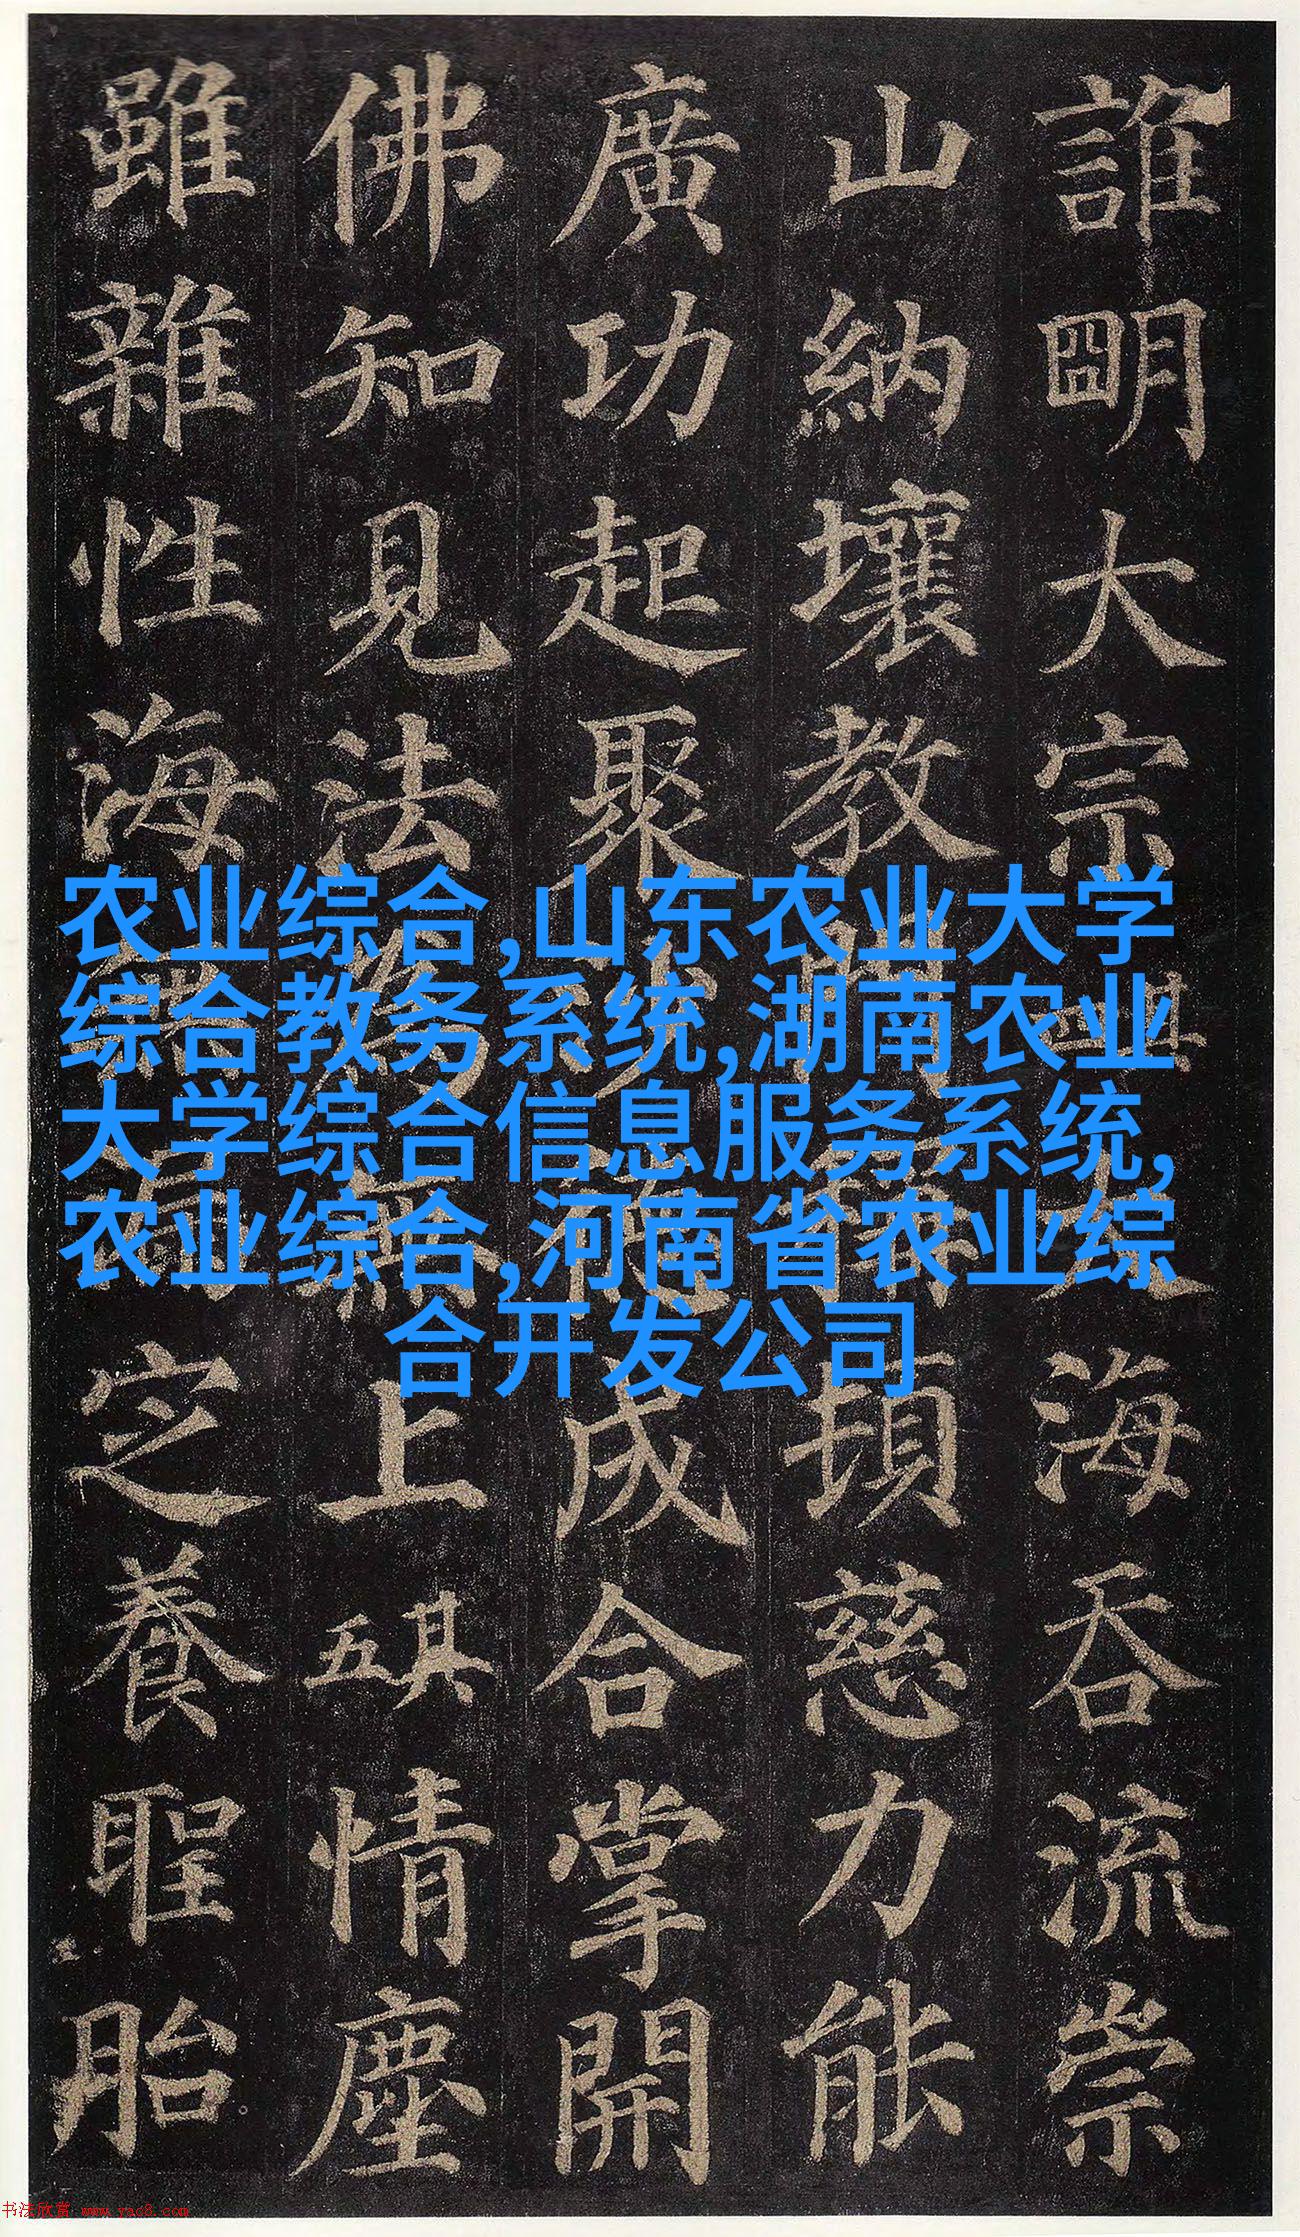 誰明大宗其四大海吞流崇
山納壤教門稱頓慈力能
廣功起聚沙德成合掌開
佛知見法為無上其五情塵
雖雜性海無漏定養聖胎
农业综合,山东农业大学
综合教务系统,湖南农业
大学综合信息服务系统,
农业综合,河南省农业综
合开发公司
书法欣赏 www.yac8.com